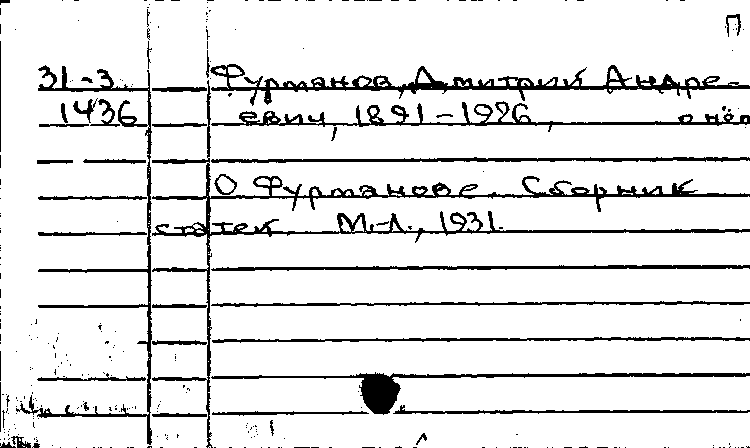 П
31-3. Фурманов, Дмитрий Андре-
1436 евич, 1891-1926, о нём
О Фурманове. Сборник
статей. М.-Л., 1931.